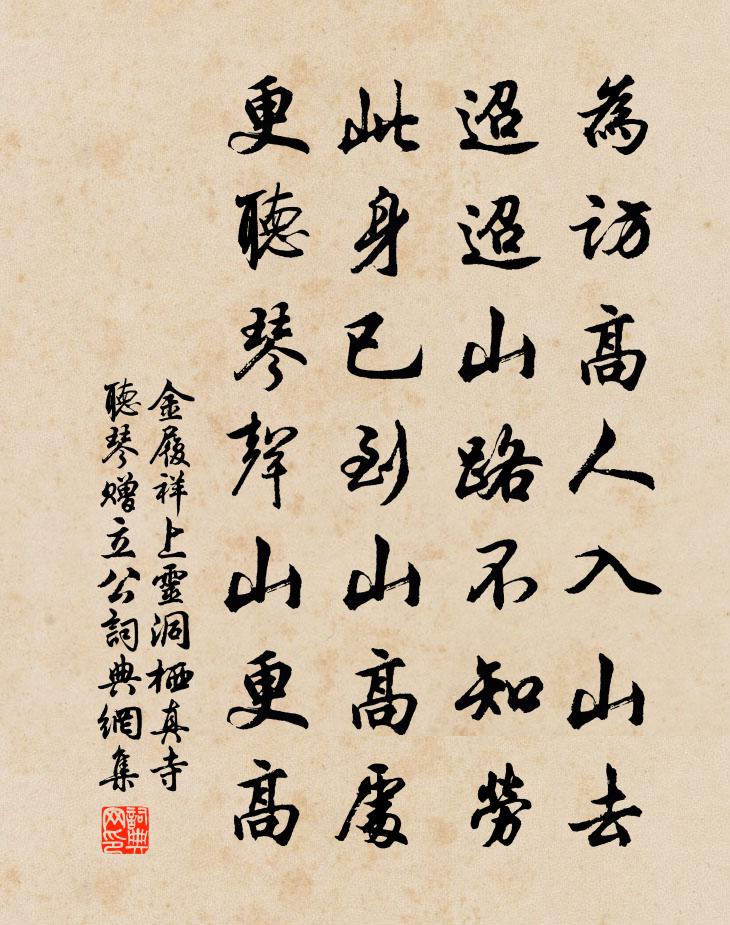 為訪高人入山去
迢迢山路不知勞
此身已到山高處
更聽琴聲山更高
金履祥上靈洞栖真寺
聽琴贈立公詞典網集
詞典网印